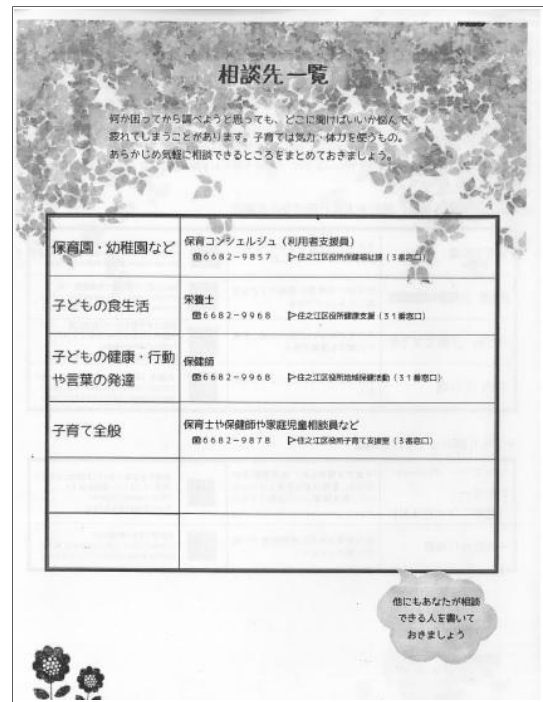 相談先一覧
何か困ってから調べようと思っても、どこに聞けばいいか悩んで、
疲れてしまうことがあります。子育ては気力・体力を使うもの。
あらかじめ気軽に相談できるところをまとめておきましょう。
保育園・幼稚園など
保育コンシェルジュ（利用者支援員）
☎6682-9857 ▷住之江区役所保健福祉課（3番窓口）
子どもの食生活
栄養士
☎6682-9968 ▷住之江区役所健康支援（31番窓口）
子どもの健康・行動
や言葉の発達
保健師
☎6682-9968 ▷住之江区役所地域保健活動（31番窓口）
子育て全般
保育士や保健師や家庭児童相談員など
☎6682-9878 ▷住之江区役所子育て支援室（3番窓口）
他にもあなたが相談
できる人を書いて
おきましょう